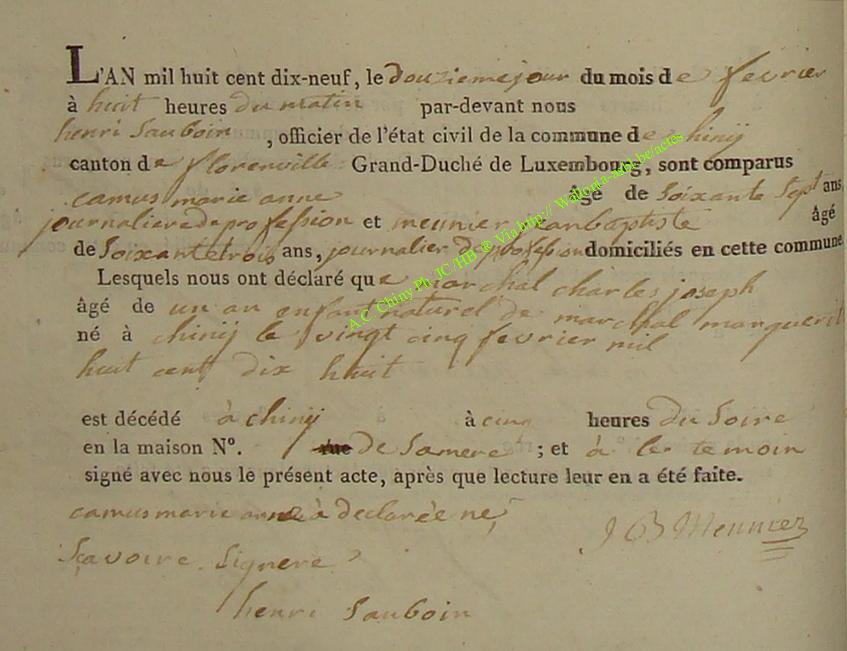 L'AN mil huit cent dix-neuf, le douziemejour du mois de fevrier
à huit heures du matin par-devant nous
henri Sauboin , officier de l'état civil de la commune de chinij
canton de florenville Grand-Duché de Luxembourg, sont comparus
camus marie anne âgé de Soixante Sept ans,
journaliere de profession et meunier jeanbaptiste âgé
de Soixantetrois ans, journalier de profession domiciliés en cette commune.
Lesquels nous ont déclaré que marchal charles joseph
âgé de un an enfant naturel de marchal marguerit
né à chinij le vingt cinq fevrier mil
huit cent dix huit
est décédé à chinij à cinq heures du Soire
en la maison N°. rue de Samere ; et à le temoin
signé avec nous le présent acte, après que lecture leur en a été faite.
camus marie anne à declarée ne
Sçavoire Signere
J B Meunier
henri Sauboin
A.C. Chiny Ph. JC /HB ® Via http:// Wallonia-asbl.be/actes